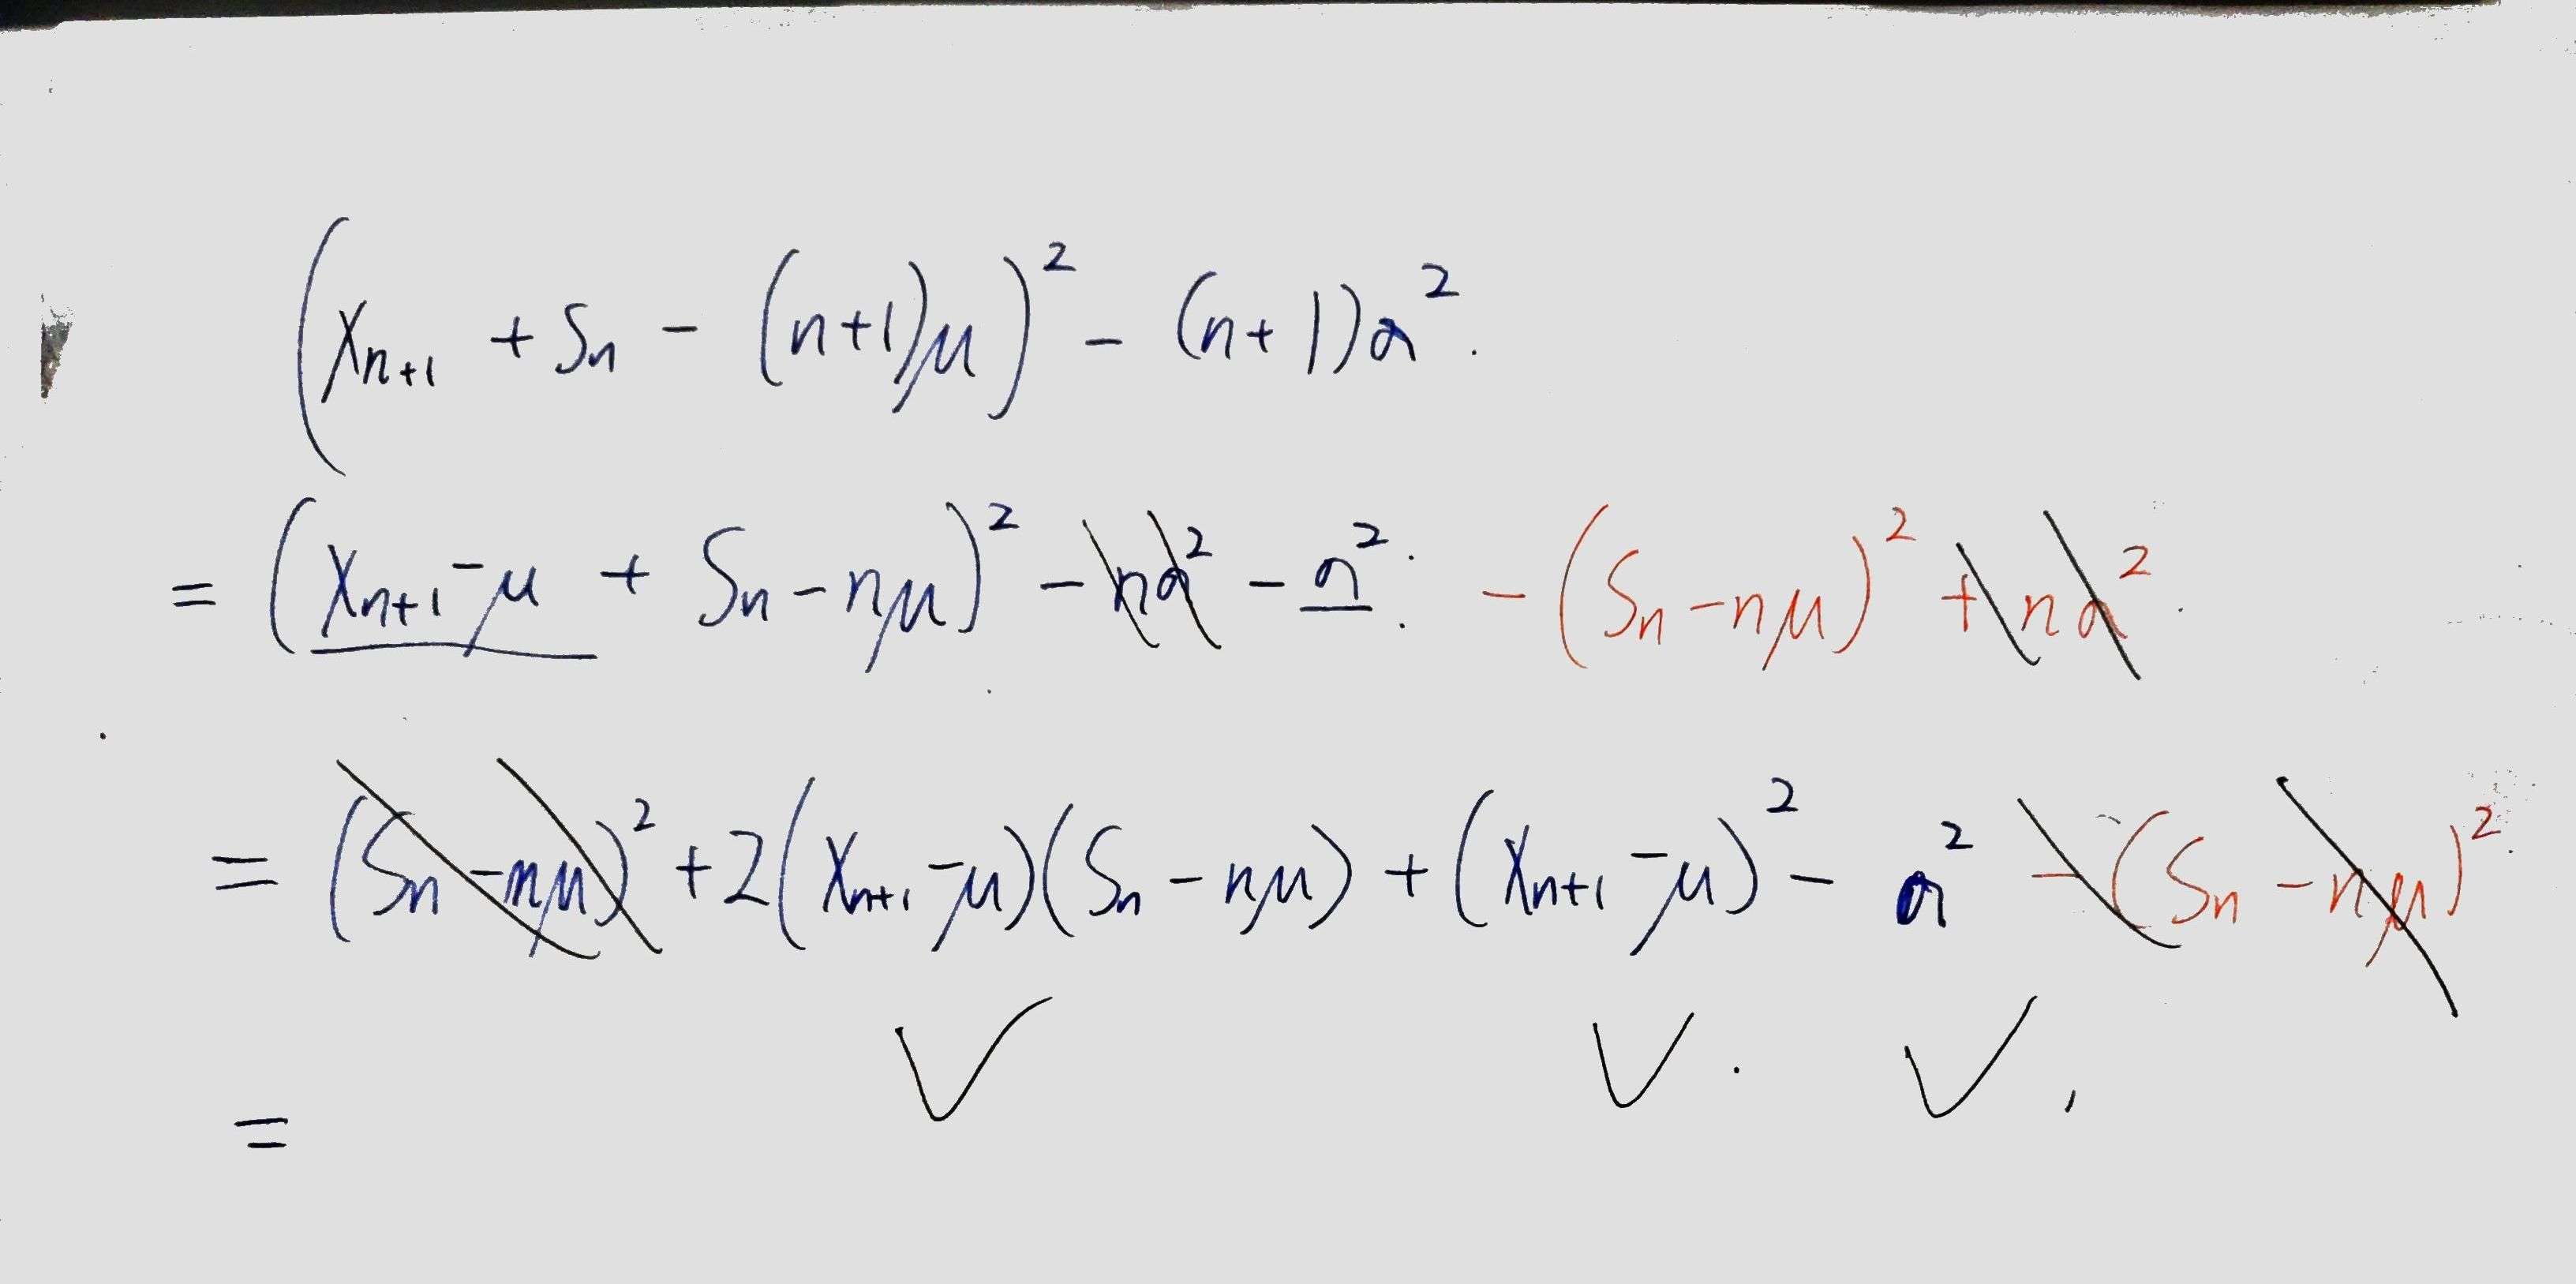 (X_{n+1} + S_n - (n+1)μ)² - (n+1)σ².
= (X_{n+1} - μ + S_n - nμ)² - nσ² - σ²: - (S_n - nμ)² + nσ².
= (S_n - nμ)² + 2(X_{n+1} - μ)(S_n - nμ) + (X_{n+1} - μ)² - σ² - (S_n - nμ)²
=